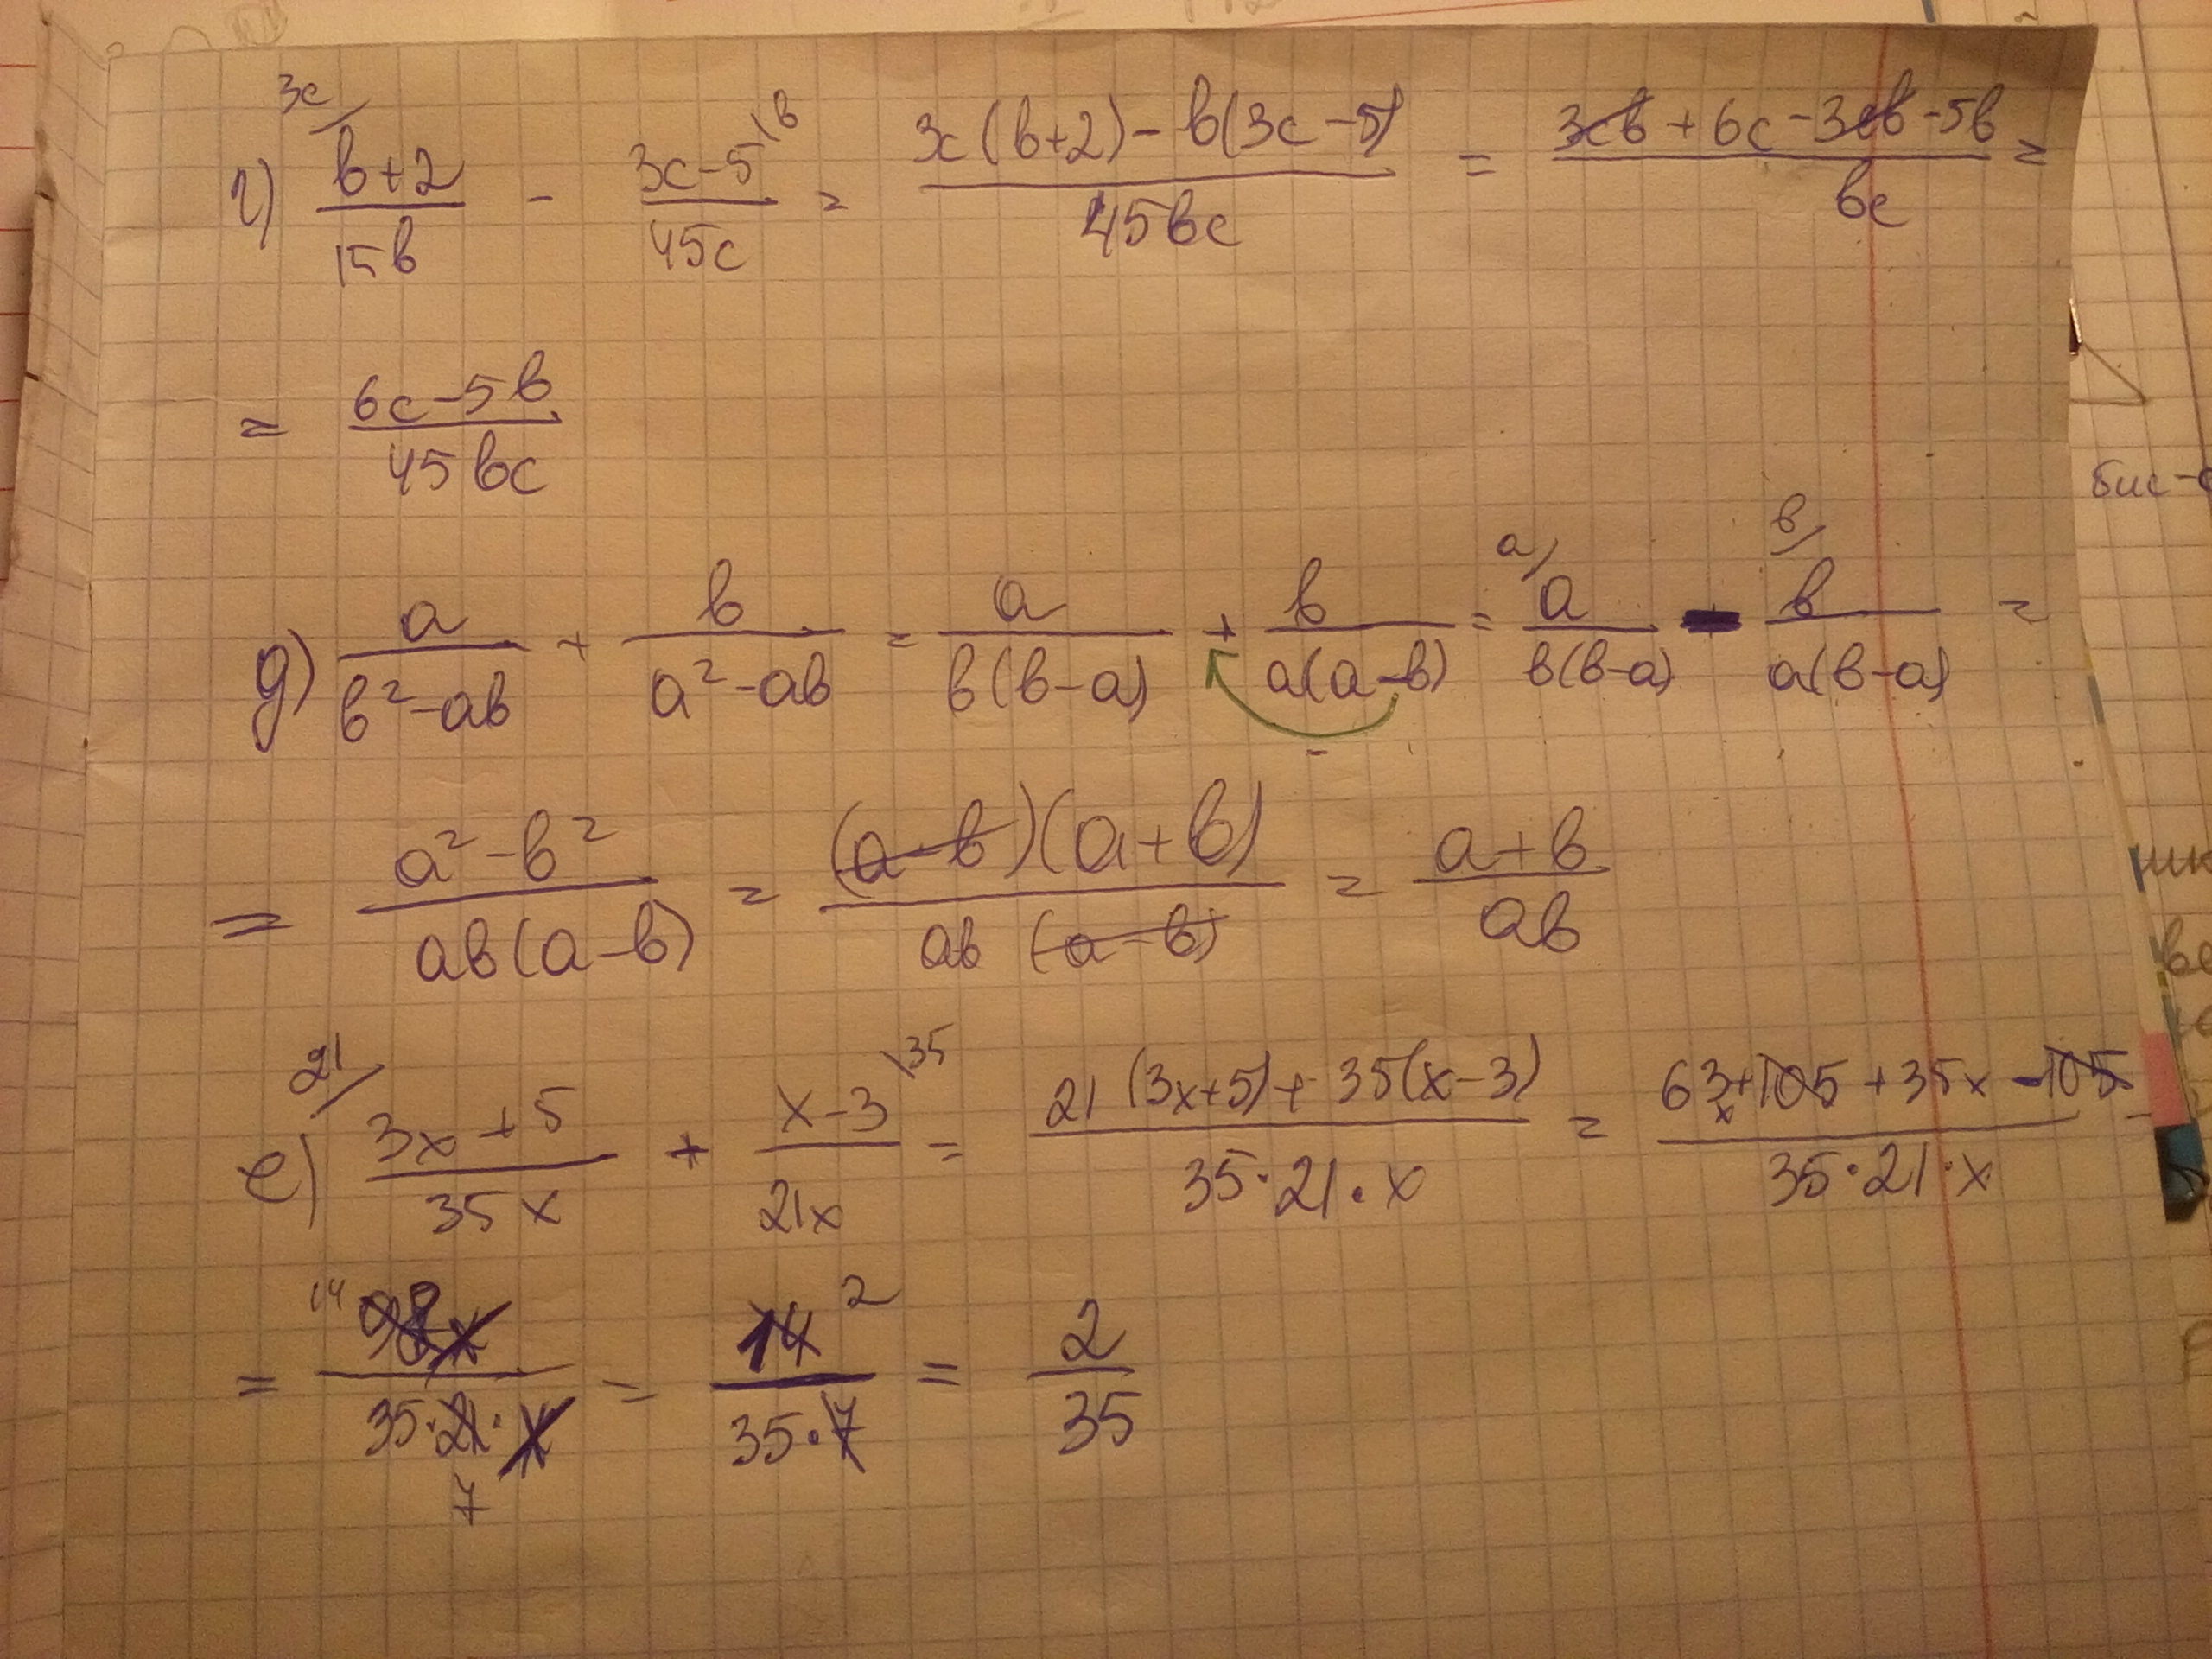 г) 3c/ (b+2)/(15b) - (3c-5)\b/(45c) = (3c(b+2)-b(3c-5))/(45bc) = (3cb+6c-3cb-5b)/(bc) =
= (6c-5b)/(45bc)
g) a/(b²-ab) + b/(a²-ab) = a/(b(b-a)) + b/(a(a-b)) = a/ a/(b(b-a)) - b/ b/(a(b-a)) =
-
= (a²-b²)/(ab(a-b)) = ((a-b)(a+b))/(ab(a-b)) = (a+b)/(ab)
e) 21/ (3x+5)/(35x) + (x-3)\35/(21x) = (21(3x+5)+35(x-3))/(35·21·x) = (63x+105+35x-105)/(35·21·x) =
= 14 98x/(35·21·x) 7 = 14 2/(35·7) = 2/35
бис-